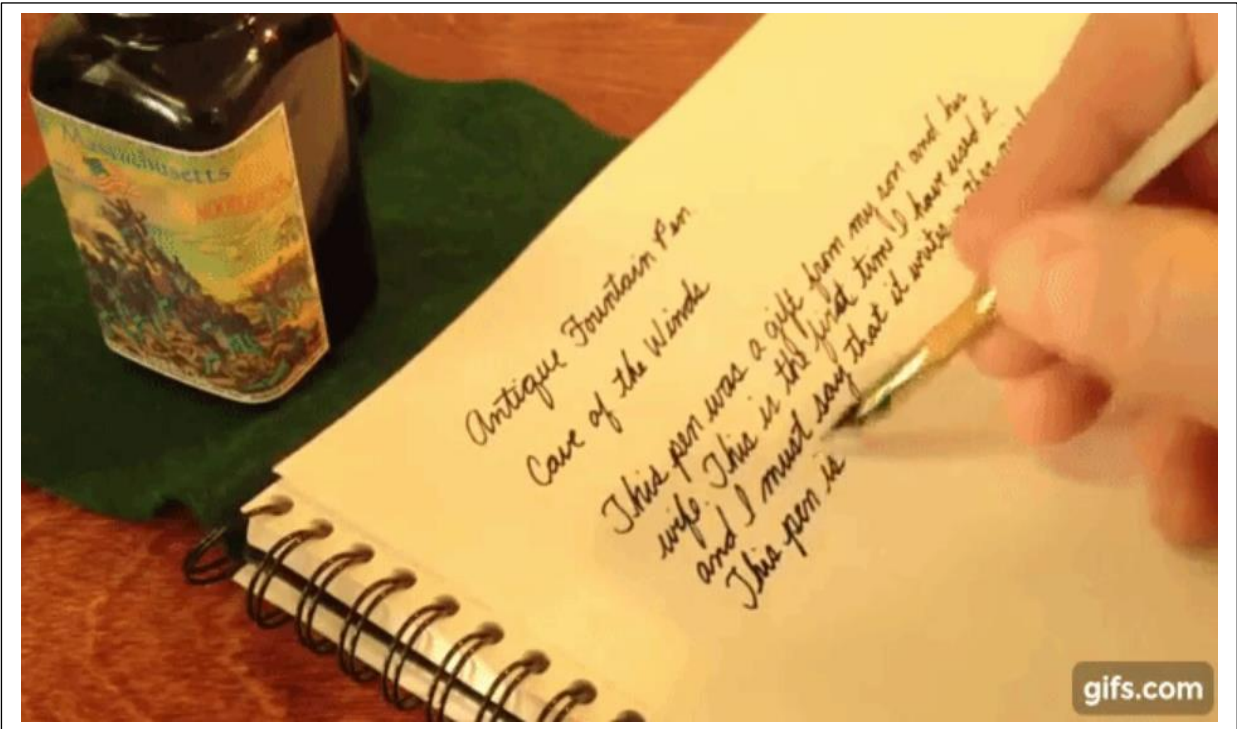 Massachusetts
Antique Fountain Pen
Cave of the Winds
This pen was a gift from my son and his
wife. This is the first time I have used it
and I must say that it writes
This pen is
gifs.com